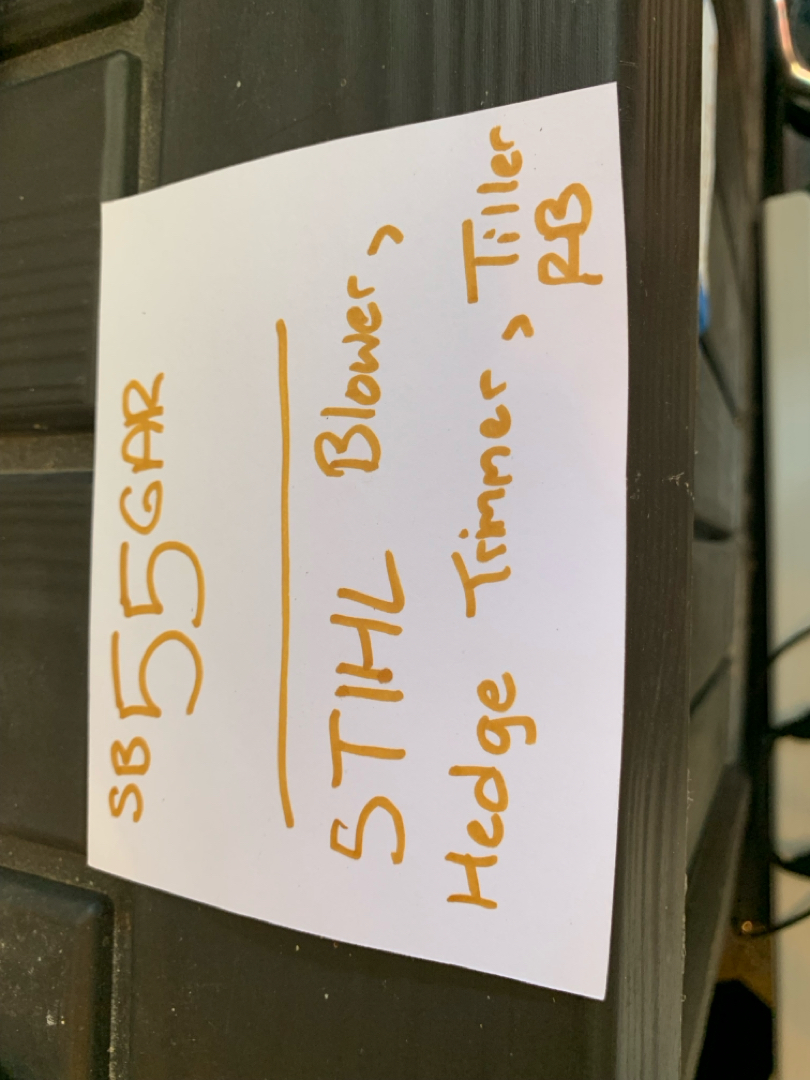 SB 55 GAR
STIHL Blower,
Hedge Trimmer, Tiller
RB